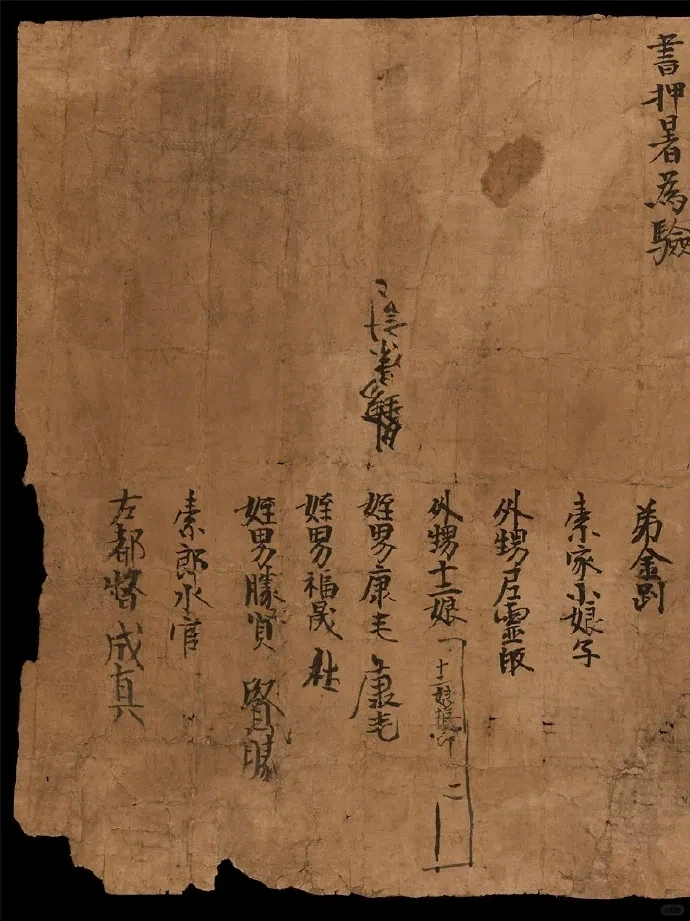 書押暑為驗
弟金剛
索家小娘子
外甥尼靈皈
外甥十二娘 十二娘指節
姪男康毛 康毛
姪男福晟
姪男勝賢 賢勝
索郎水官
左都督成真